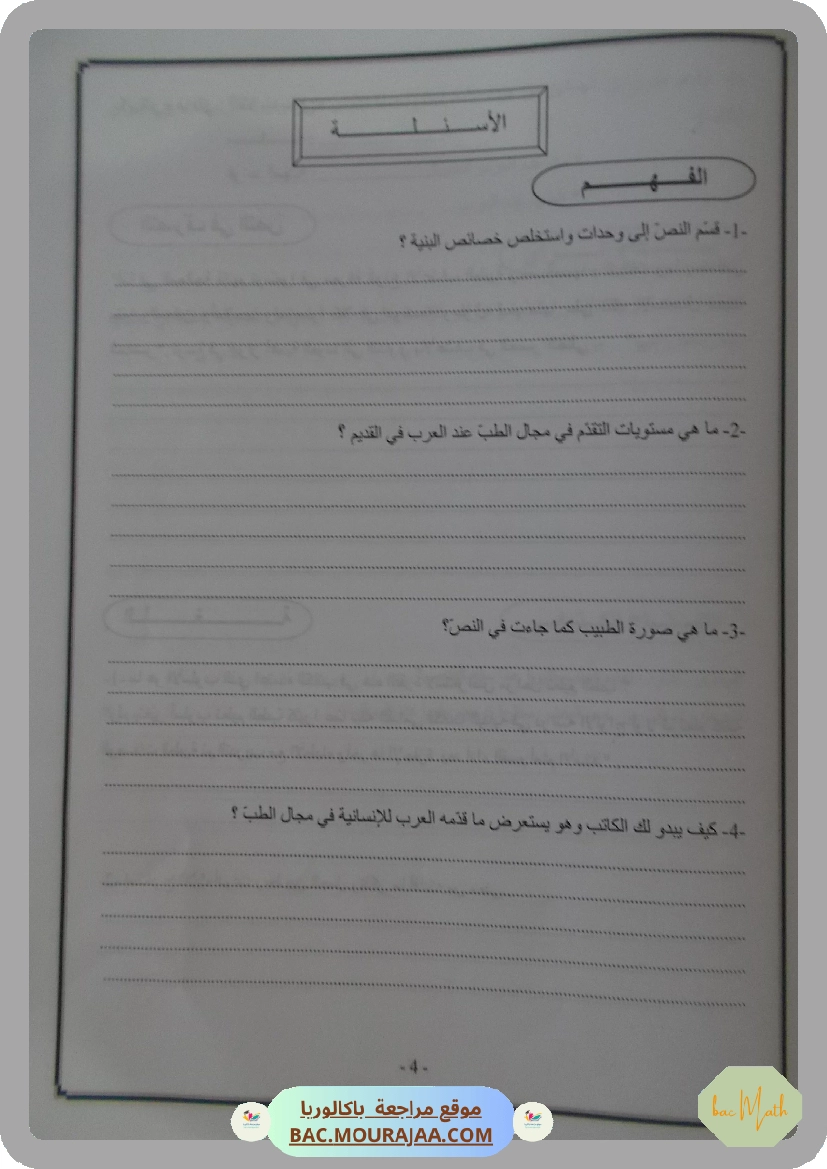 الأسئلة
الفهم
-1- قسّم النصّ إلى وحدات واستخلص خصائص البنية ؟
-2- ما هي مستويات التقدّم في مجال الطبّ عند العرب في القديم ؟
-3- ما هي صورة الطبيب كما جاءت في النصّ؟
-4- كيف يبدو لك الكاتب وهو يستعرض ما قدّمه العرب للإنسانية في مجال الطبّ ؟
- 4 -
موقع مراجعة باكالوريا
BAC.MOURAJAA.COM
bac Math